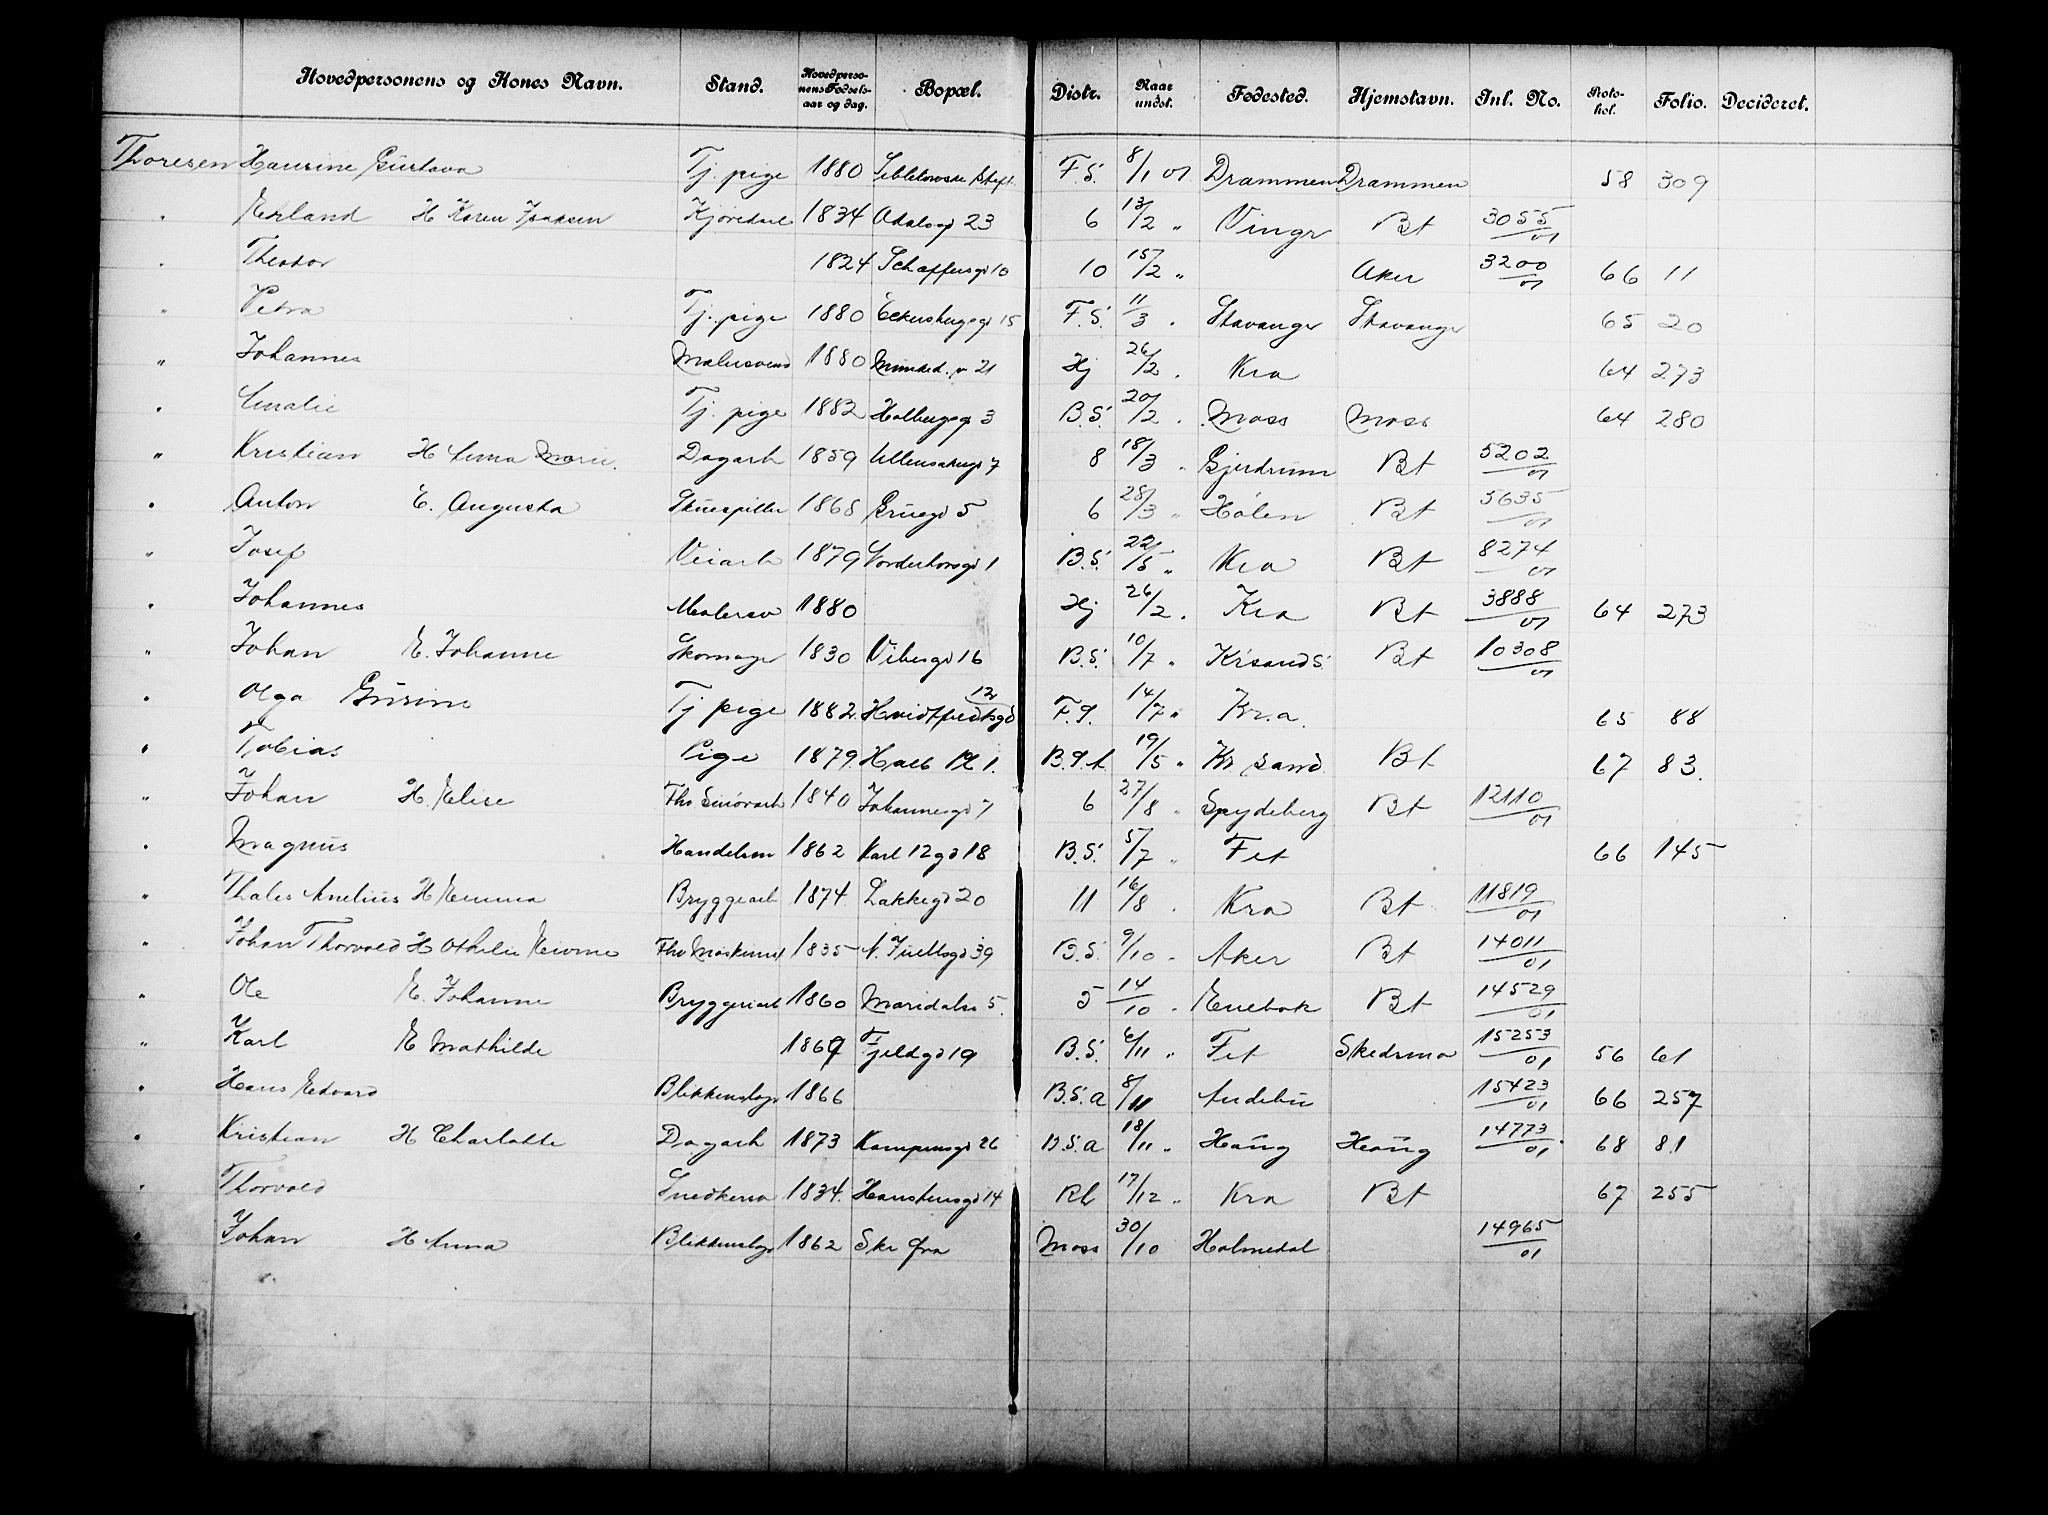 Hovedpersonens og Kones Navn. Stand. Hovedpersonens Fødselsaar og dag. Bopæl. Distr. Naar undst. Fødested. Hjemstavn. Inl. No. Protokol. Folio. Decideret.
Thoresen Gustava Tj. pige 1880 F.S. 8/1 01 Drammen Drammen 58 309
" Erland H Karen Isaksen 1834 Odalsgd 23 6 13/2 " Vinger Bt 3055/01
" Theodor 1824 10 15/2 " Aker 3200/01 66 11
" Petra Tj. pige 1880 15 F.S. 11/3 " Stavanger Stavanger 65 20
" Johannes Malersvend 1880 21 Hj 26/2 " Kra 64 273
" Emalie Tj. pige 1882 Holbergsgd 3 B.S. 20/2 " Moss Moss 64 280
" Kristian H Anna Marie Dagarb 1859 Ullensakergd 7 8 18/3 " Gjerdrum Bt 5202/01
" Anton E. Augusta Skuespiller 1868 Gruegd 5 6 28/3 " Hølen Bt 5635/01
" Josef Veiarb 1879 1 B.S. 22/5 " Kra Bt 8274/01
" Johannes Malersv 1880 Hj 26/2 " Kra Bt 3888/01 64 273
" Johan E. Johanne Skomager 1830 Vibesgd 16 B.S. 10/7 " Krsands Bt 10308/01
" Olga Gusine Tj pige 1882 Hvidtfeldtsgd 12 14/7 " Kr.a. 65 88
" Tobias Pige 1879 1. 19/5 " Kr sand Bt 67 83.
" Johan H. Elise Fhv 1840 Johannesgd 7 6 27/8 " Spydeberg Bt 12110/01
" Magnus Handelsm 1862 Karl 12 gd 18 B.S. 5/7 " Fet 66 145
" Thales Anelius H Emma Bryggearb 1874 Lakkegd 20 11 16/8 " Kra Bt 11819/01
" Johan Thorvald H Othilie Fhv Maskinist 1835 N. Juellsgd 39 B.S. 9/10 " Aker Bt 14011/01
" Ole E. Johanne Bryggeriarb 1860 Maridalsv 5. 5 14/10 " Enebak Bt 14529/01
" Karl E Mathilde 1869 Fjeldgd 19 B.S. 6/11 " Fet Skedsmo 15253/01 56 61
" Hans Edvard Blikkenslager 1866 B.S.a 8/11 Andebu 15423/01 66 257
" Kristian H Charlotte Dagarb 1873 Kampensgd 26 B.S.a 18/11 " Haug Haug 14773/01 68 81
" Thorvald Snedkersv 1834. Hanstensgd 14 Rb 17/12 " Kra Bt 67 255
" Johan H Anna Blikkenslager 1862 Ske fra Moss 30/10 Holmedal 14965/01